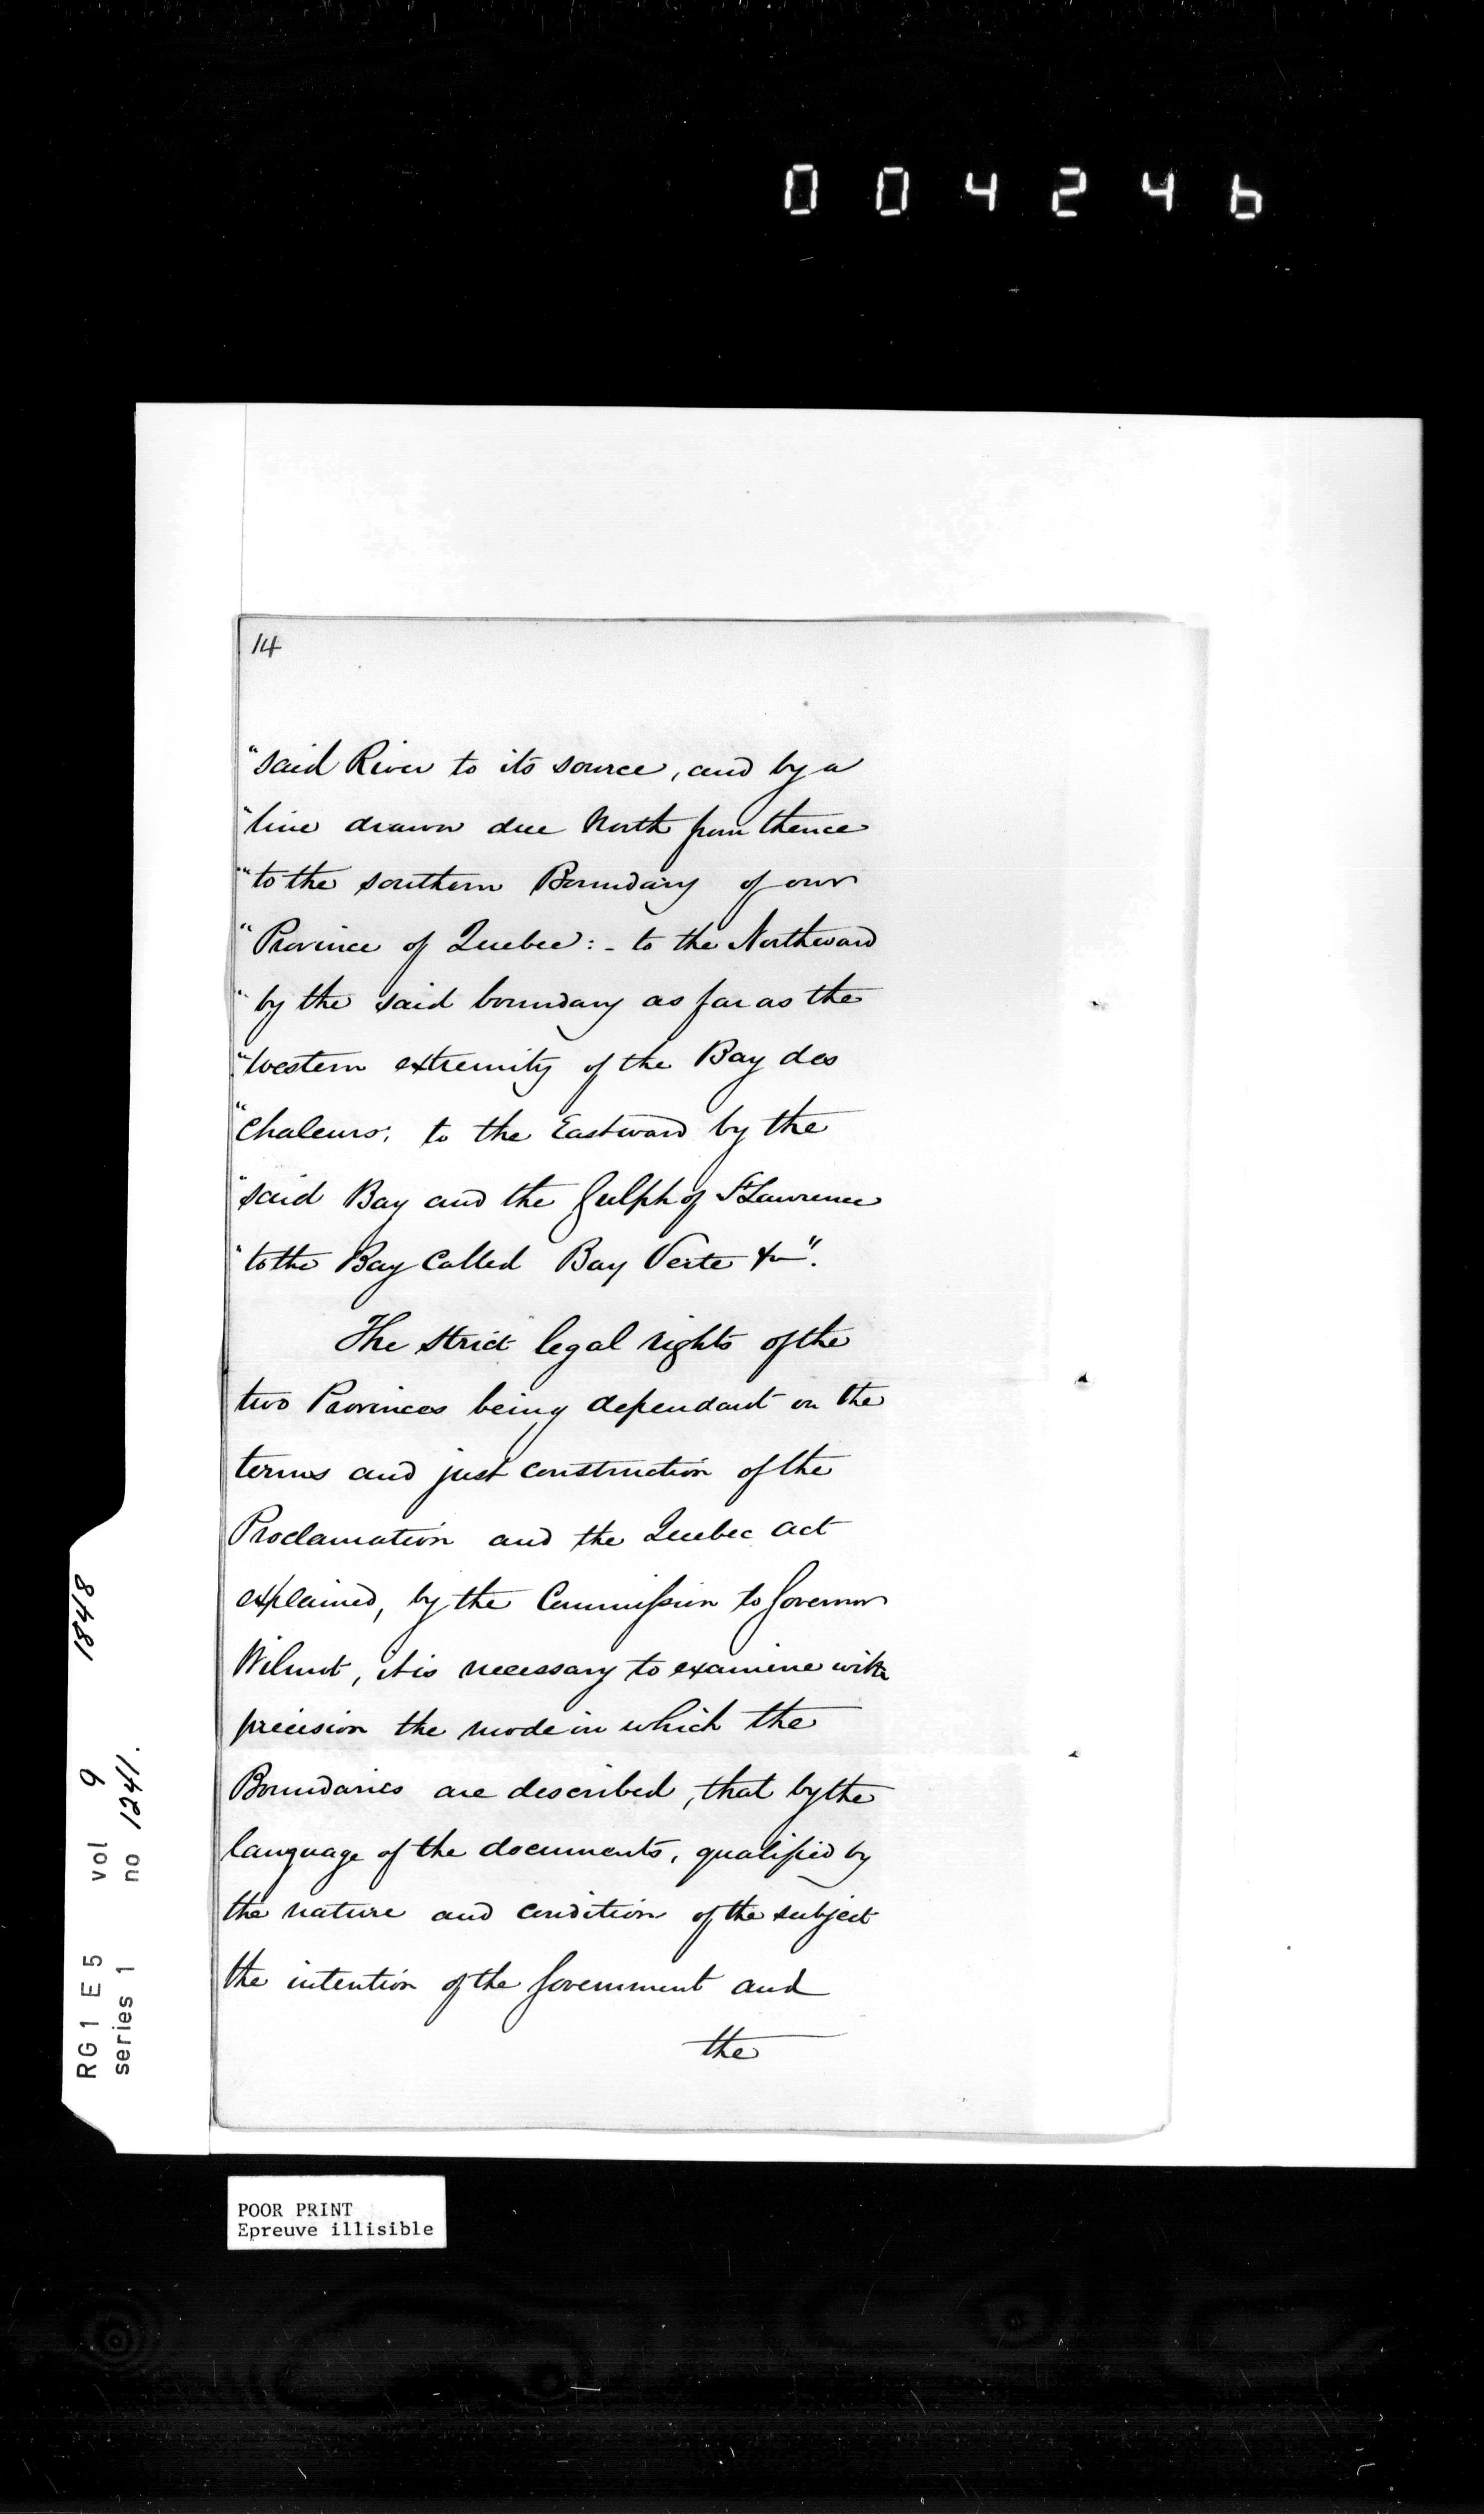 004246
14
"said River to its source, and by a
"line drawn due North from thence
"to the southern Boundary of our
"Province of Quebec: - to the Northward
"by the said boundary as far as the
"western extremity of the Bay des
"Chaleurs; to the Eastward by the
"said Bay and the Gulph of St Lawrence
"to the Bay Called Bay Verte &c".
The strict legal rights of the
two Provinces being dependant on the
terms and just construction of the
Proclamation and the Quebec Act
explained, by the Commission to Governor
Wilmot, it is necessary to examine with
precision the mode in which the
Boundaries are described, that by the
language of the documents, qualified by
the nature and condition of the subject
the intention of the Government and
the
RG 1 E 5 vol 9 1848
series 1 no 1241.
POOR PRINT
Epreuve illisible